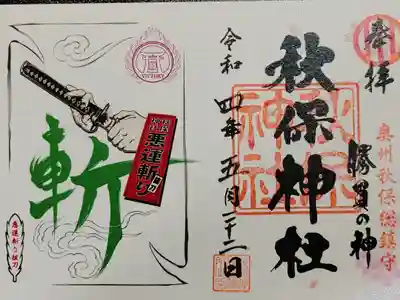 奉拝
奥州秋保総鎮守
勝負の神
秋保神社
令和四年五月二十二日
VICTORY
斬
悪運斬り
悪運斬り抜刀